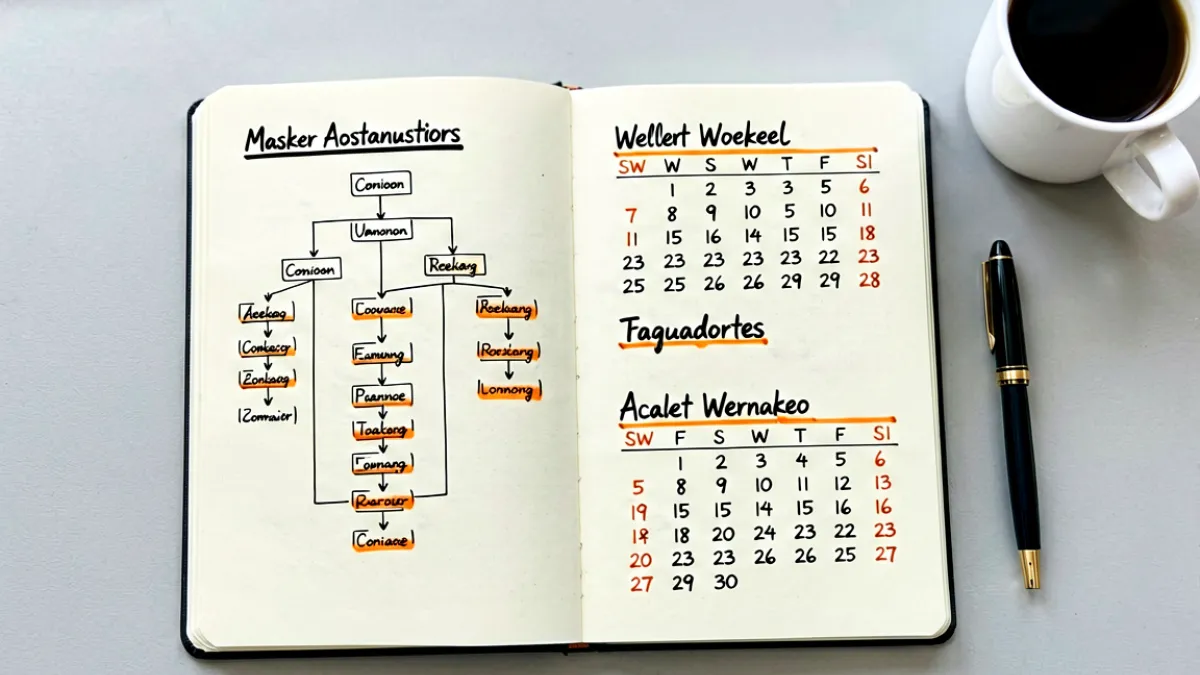 Masker Aostanustiors
Conioon
Umonon
Conioon
Reekang
Aeekog
Conkecor
Zonkoog
Zomraior
Coovace
Eamung
Paannoe
Toakong
Foumang
Rarour
Coniace
Roekang
Rocxiong
Lonnong
Wellert Woekeel
SW W S W T F SI
1 2 3 3 5 6
7 8 9 10 5 10 11
11 15 16 14 15 15 18
23 23 23 23 23 22 23
25 25 26 26 29 29 28
Faguadortes
Acalet Wernakeo
SW F S W T F SI
1 2 3 4 5 6
5 8 9 10 11 12 13
19 15 15 14 15 16 16
18 20 24 23 22 23
20 23 23 26 26 25 27
27 29 30